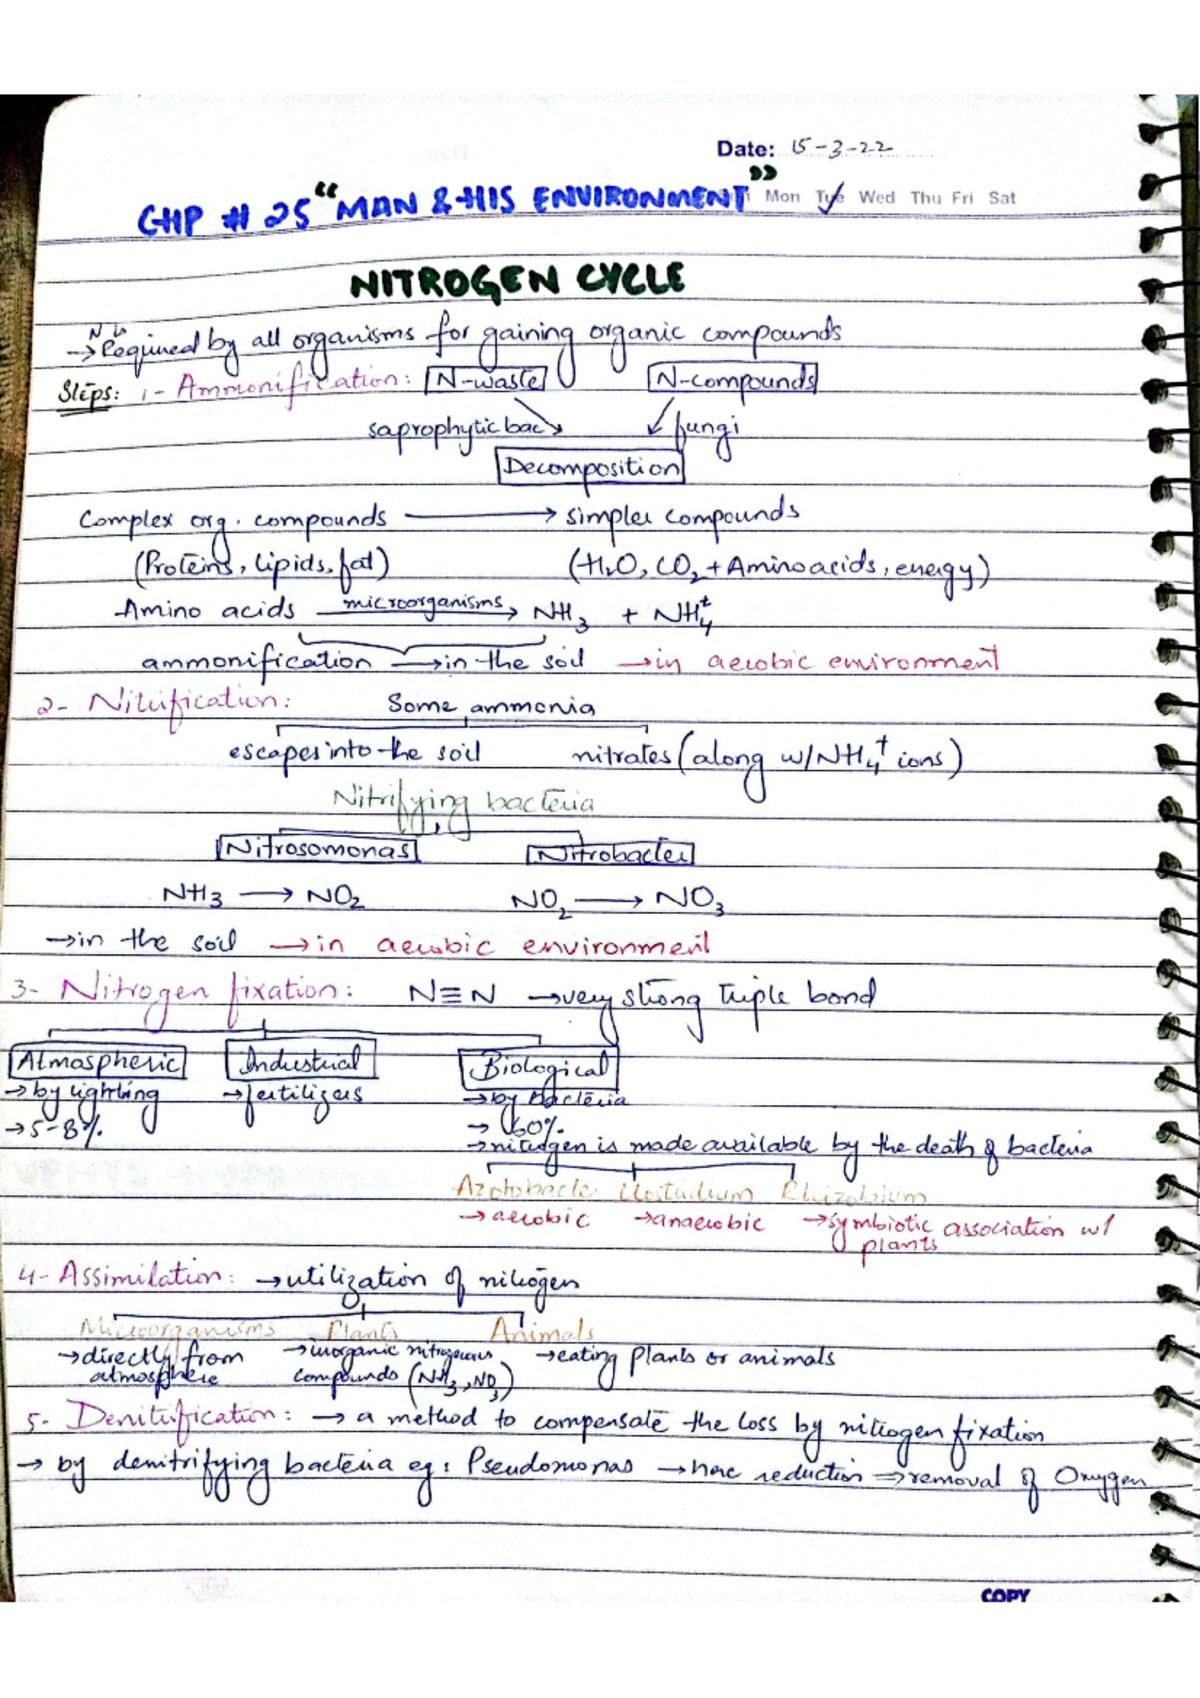 Date: 15-3-22
CHP # 25 "MAN & HIS ENVIRONMENT" Mon Tue Wed Thu Fri Sat
NITROGEN CYCLE
N is
→ Required by all organisms for gaining organic compounds
Steps: 1- Ammonification: N-waste N-compounds
saprophytic bac fungi
Decomposition
Complex org. compounds → simpler compounds
(Proteins, lipids, fat) (H₂O, CO₂ + Amino acids, energy)
Amino acids microorganisms → NH₃ + NH₄⁺
ammonification → in the soil → in aerobic environment
2- Nitrification: Some ammonia
escapes into the soil nitrates (along w/ NH₄⁺ ions)
Nitrifying bacteria
Nitrosomonas Nitrobacter
NH₃ → NO₂ NO₂ → NO₃
→ in the soil → in aerobic environment
3- Nitrogen fixation: N≡N → very strong triple bond
Atmospheric Industrial Biological
→ by lighting → fertilizers → by bacteria
→ 5-8% → 60%
→ nitrogen is made available by the death of bacteria
Azotobacter Clostridium Rhizobium
→ aerobic → anaerobic → symbiotic association w/
plants
4- Assimilation: → utilization of nitrogen
Microorganisms Plants Animals
→ directly from → inorganic nitrogenous → eating plants or animals
atmosphere compounds (NH₃, NO₃)
5- Denitrification: → a method to compensate the loss by nitrogen fixation
→ by denitrifying bacteria eg: Pseudomonas → reduction ⇒ removal of Oxygen
COPY